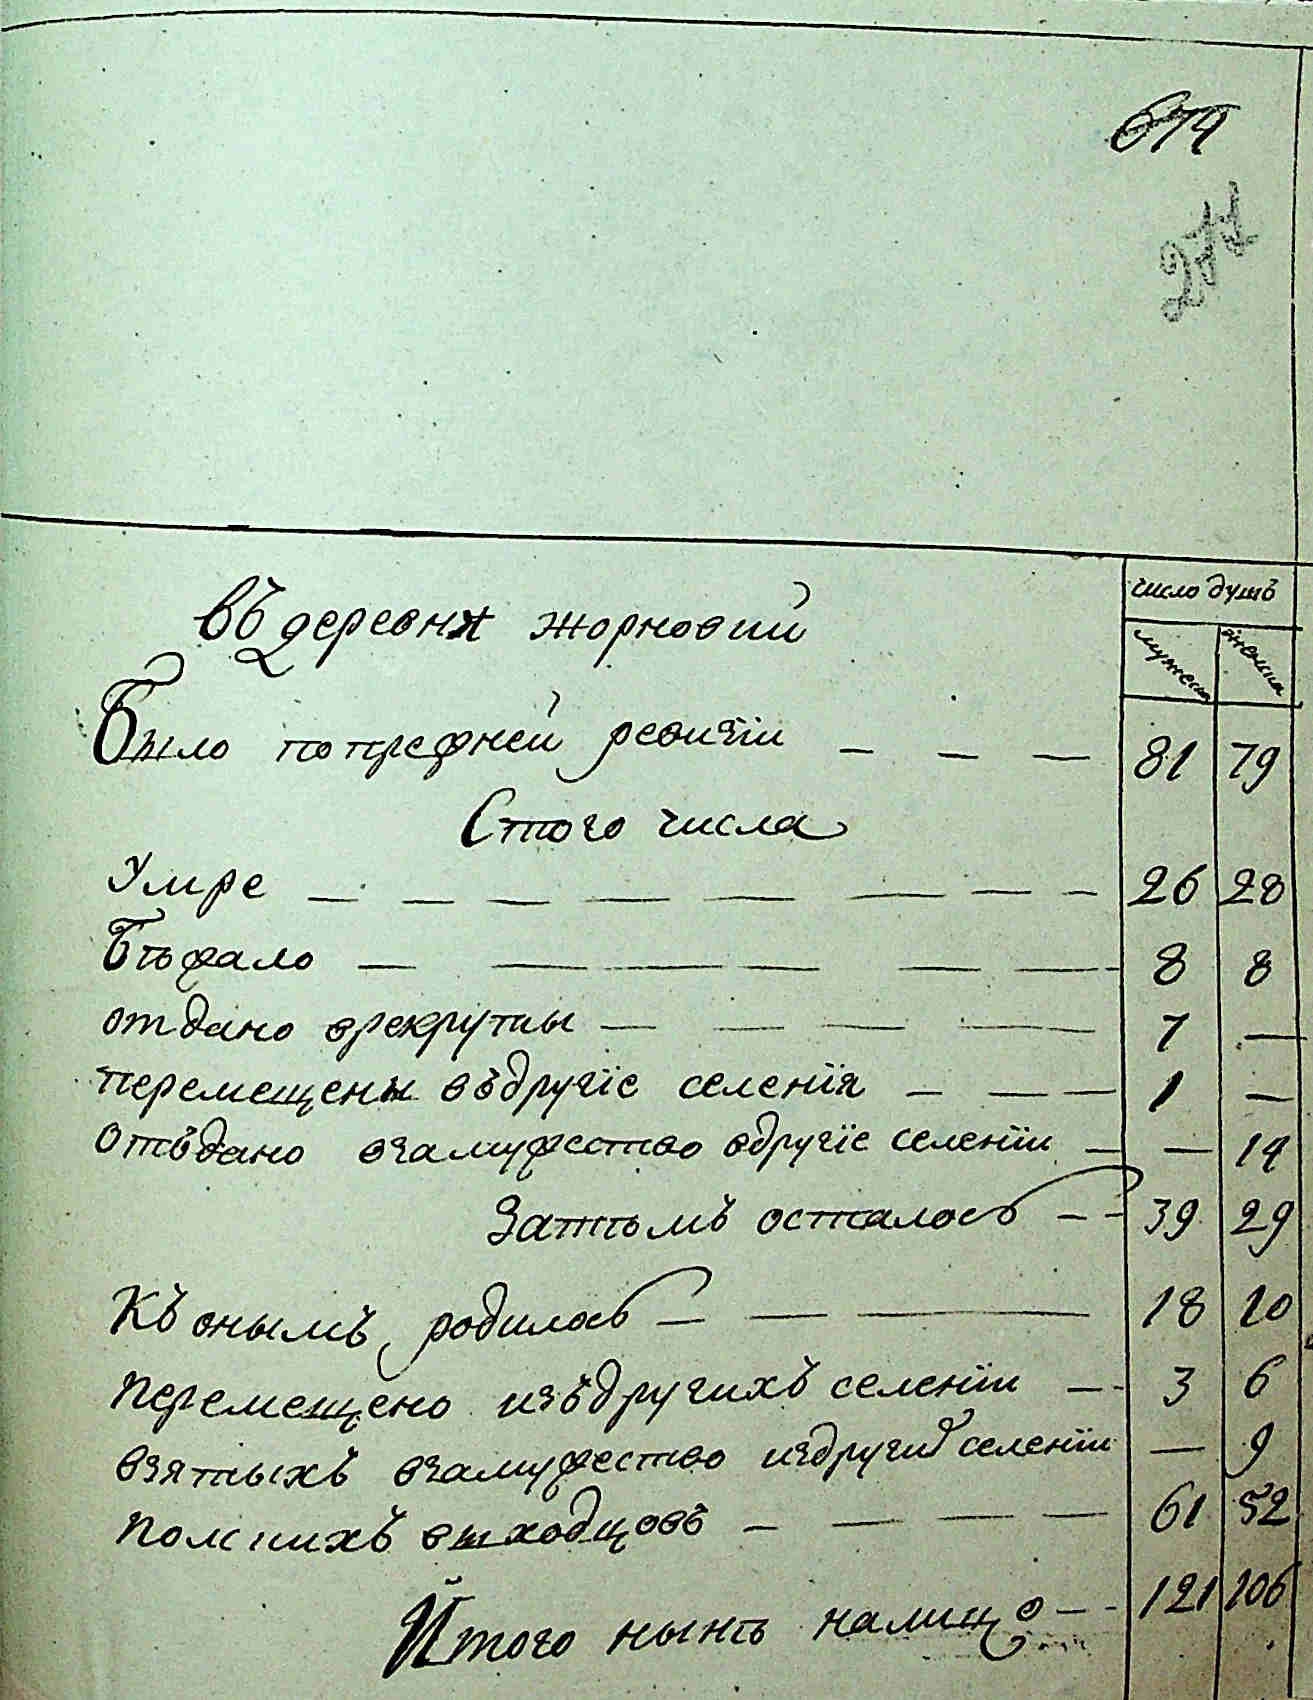 674
271
число душъ
мужеска женска
въ деревня жорновии
Было попрежней ревизіи — — — 81 79
Стого числа
Умре — — — — — — — — 26 28
Бѣжало — — — — — — 8 8
отдано врекруты — — — — — 7 —
перемещены въдругіе селенія — — — 1 —
Отъдано взамужество вдругіе селеніи — — 14
Затѣмъ осталось — - 39 29
Къ онымъ родилось — — — 18 10
перемещено изъдругихъ селеніи — - 3 6
взятыхъ взамужество издругих селеніи — 9
полскихъ выходцовъ — — — — 61 52
Итого нынѣ налицо — - 121 106